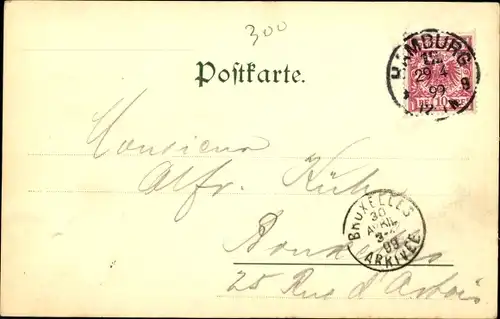 300
Postkarte.
HAMBURG
29 4
99
8
10
Monsieur
Alfr. Kühn
BRUXELLES
30
AVRIL
3-
99
ARRIVÉE
25 Rue d'Artois